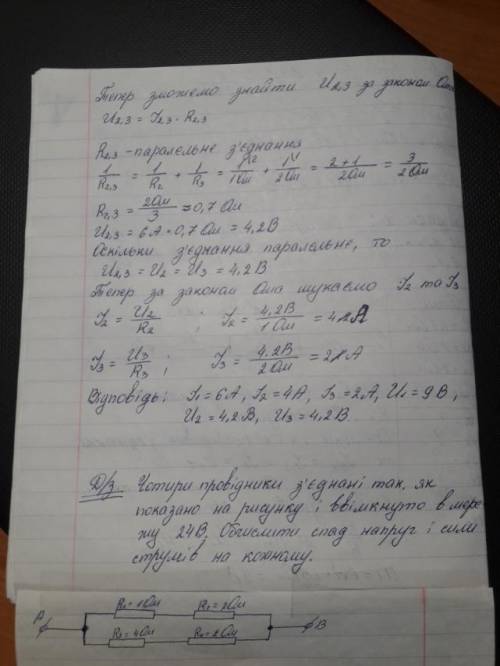 Тепер зможемо знайти U2,3 за законом Ома
U2,3 = I2,3 · R2,3
R2,3 - паралельне з'єднання
1/R2,3 = 1/R2 + 1/R3 = 1\2/1Ом + 1\1/2Ом = 2+1/2Ом = 3/2Ом
R2,3 = 2Ом/3 ≈ 0,7 Ом
U2,3 = 6А · 0,7 Ом = 4,2В
Оскільки з'єднання паралельне, то
U2,3 = U2 = U3 = 4,2В
Тепер за законом Ома шукаємо I2 та I3
I2 = U2/R2 ; I2 = 4,2В/1Ом = 4,2А
I3 = U3/R3 ; I3 = 4.2В/2Ом = 2,1А
Відповідь: I1 = 6А, I2 = 4А, I3 = 2А, U1 = 9В,
U2 = 4,2В, U3 = 4,2В.
Д/з. Чотири провідники з'єднані так, як
показано на рисунку і ввімкнуто в мере
жу 24В. Обчислити спад напруг і сили
струмів на кожному.
= 1Ом = 2Ом
A B
= 4Ом = 2Ом